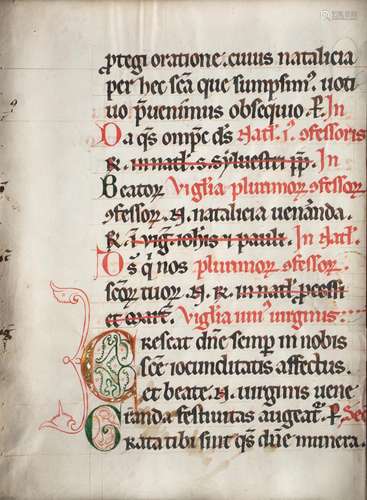 ꝓtegi oratione. cuius natalicia
per hec scā que sumpsimꝰ. uoti
uo p̄uenimus obsequio. P̄. In
Da qs om̄pc̄ ds̄ Nat̄l. iꝰ. ꝯfessoris
R. in nat̄l. s. syluestri pp̄. In
Beatoꝝ Uiglia plurimoꝝ ꝯfessoꝝ
ꝯfessoꝝ. N. natalicia uenāda.
R. ī uiḡ. ioh̄is ⁊ pauli. In Nat̄l.
Ds̄ q̇ nos plurimoꝝ ꝯfessoꝝ.
scōꝝ tuoꝝ. N. R. in nat̄l. p̄cessi
et mart̄. Uiglia uniꝰ uirginis
Crescat dn̄e semꝑ in nobis
scē iocunditatis affectus.
et beate. N. uirginis uene
randa festiuitas augeat̄. P̄. Sec̄
Grata tibi sint qs̄ dn̄e munera.